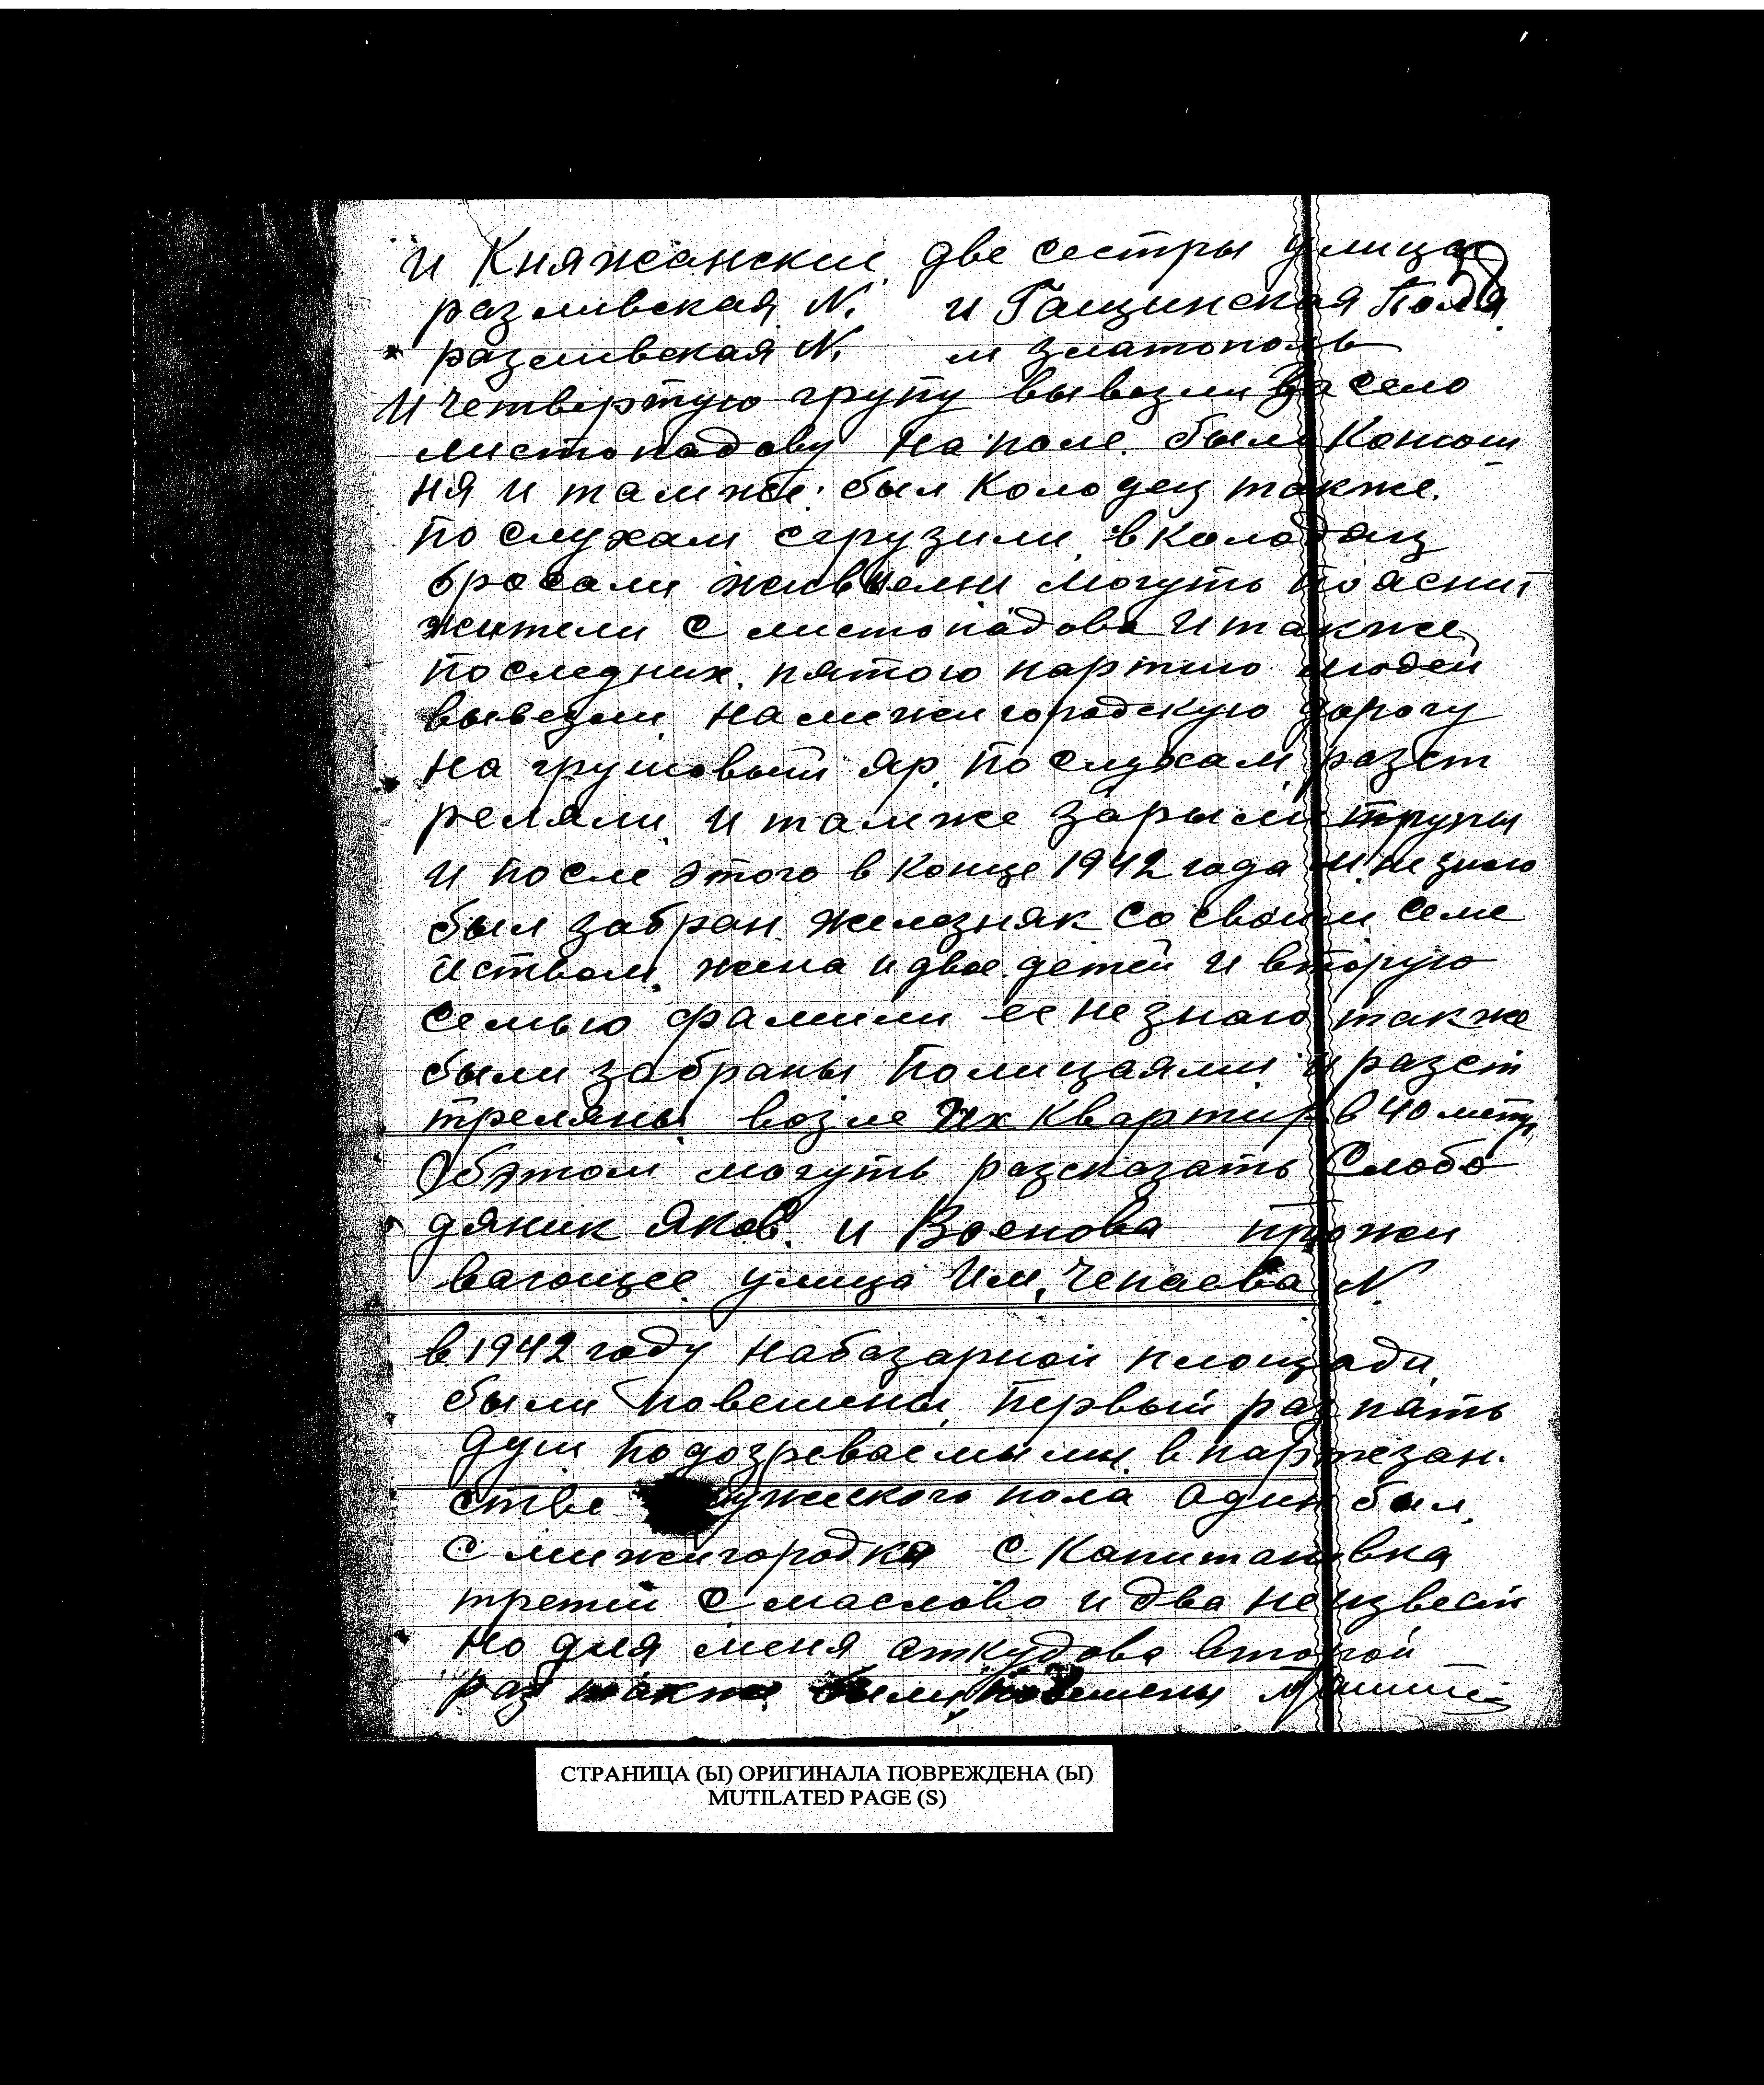 58
и Княжанские две сестры улица
разливская N. и Гащинская Поля
разливская N. м златополь
И четвертую групу вывезли За село
листопадову на поле. была Конюш
ня и тамже. был Колодец также.
по слухам сгрузили в колодяц
бросали живыеми могуть пояснит
жители с листопадова И также
последних. пятою партию людей
вывезли на межигородскую дорогу
на грушовый яр. по слухам разст
реляли и тамже зарыли трупы
и после этого в конце 1942 года м. незнаю
был забран железняк со своим семе
йством. жена и двое детей и вторую
семью фамили ее незнаю также
были забраны Полицаями и разст
треляны возле Их Квартир в 40 метр.
Обэтом могуть разсказать Слобо
дяник Яков. и Военова прожи
вающее улица Им. Чепаева N.
в 1942 году на базарной площади
были повешены. Первый раз пять
душ подозреваемыми в партезан.
стве мужского пола один был
с межигородка с Капитановка
третий с маслово и два неизвест
но для меня откудова второй
раз также были повешены
СТРАНИЦА (Ы) ОРИГИНАЛА ПОВРЕЖДЕНА (Ы)
MUTILATED PAGE (S)